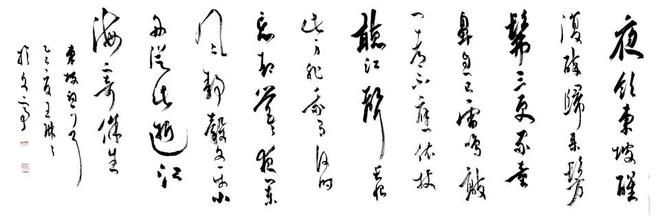 夜飲東坡醒
復醉歸來髣
髴三更家童
鼻息已雷鳴敲
門都不應依杖
聽江聲長恨
此身非我有何時
忘却營營夜闌
風静縠文平小
舟從此逝江
海寄餘生
東坡